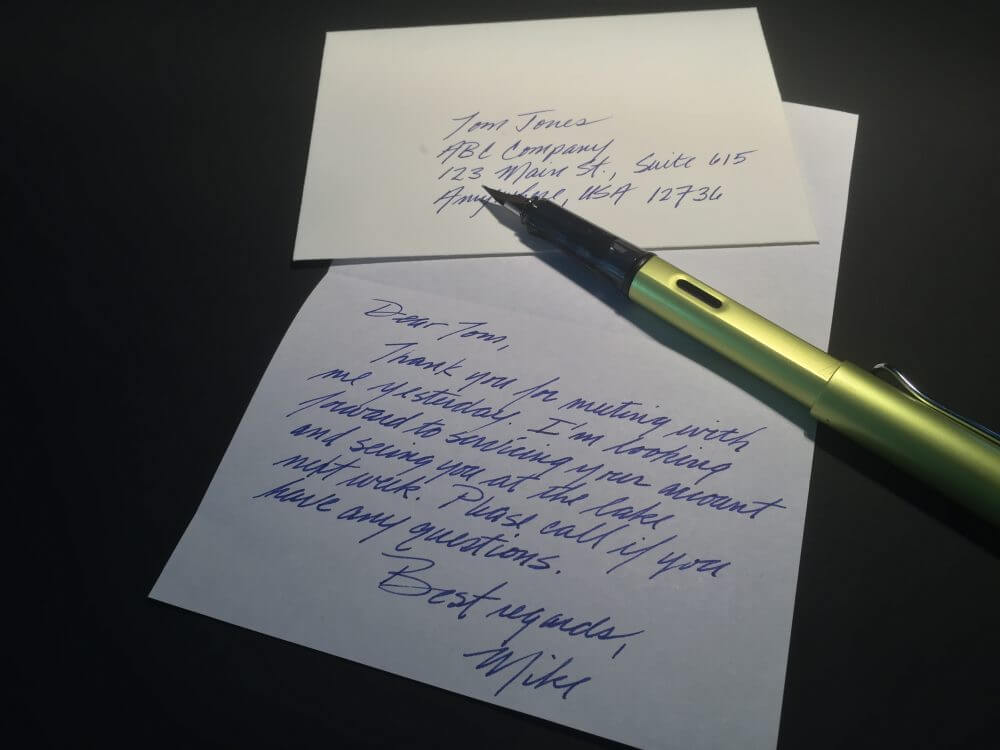 Tom Jones
ABC Company
123 Main St., Suite 615
Anywhere, USA 12736
Dear Tom,
Thank you for meeting with
me yesterday. I'm looking
forward to servicing your account
and seeing you at the lake
next week. Please call if you
have any questions.
Best regards,
Mike